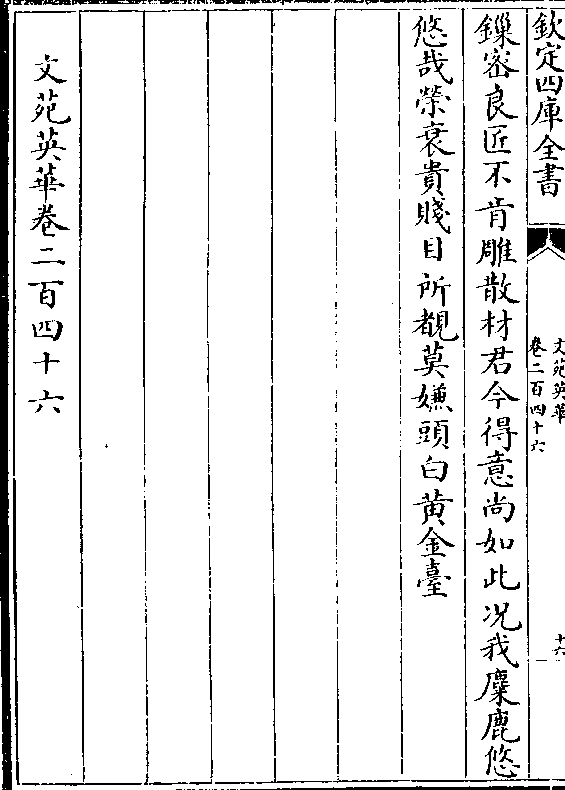 欽定四庫全書
文苑英華
卷二百四十六
十六
鏁密良匠不肯雕散材君今得意尚如此况我麋鹿悠
悠哉榮衰貴賤目所覩莫嫌頭白黄金臺
文苑英華卷二百四十六